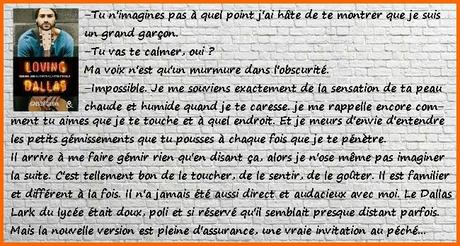 LOVING
DALLAS
-Tu n'imagines pas à quel point j'ai hâte de te montrer que je suis
un grand garçon.
-Tu vas te calmer, oui ?
Ma voix n'est qu'un murmure dans l'obscurité.
-Impossible. Je me souviens exactement de la sensation de ta peau
chaude et humide quand je te caresse. je me rappelle encore com-
ment tu aimes que je te touche et à quel endroit. Et je meurs d'envie d'entendre
les petits gémissements que tu pousses à chaque fois que je te pénètre.
Il arrive à me faire gémir rien qu'en disant ça, alors je n'ose même pas imaginer
la suite. C'est tellement bon de le toucher, de le sentir, de le goûter. Il est familier
et différent à la fois. Il n'a jamais été aussi direct et audacieux avec moi. Le Dallas
Lark du lycée était doux, poli et si réservé qu'il semblait presque distant parfois.
Mais la nouvelle version est pleine d'assurance, une vraie invitation au péché...